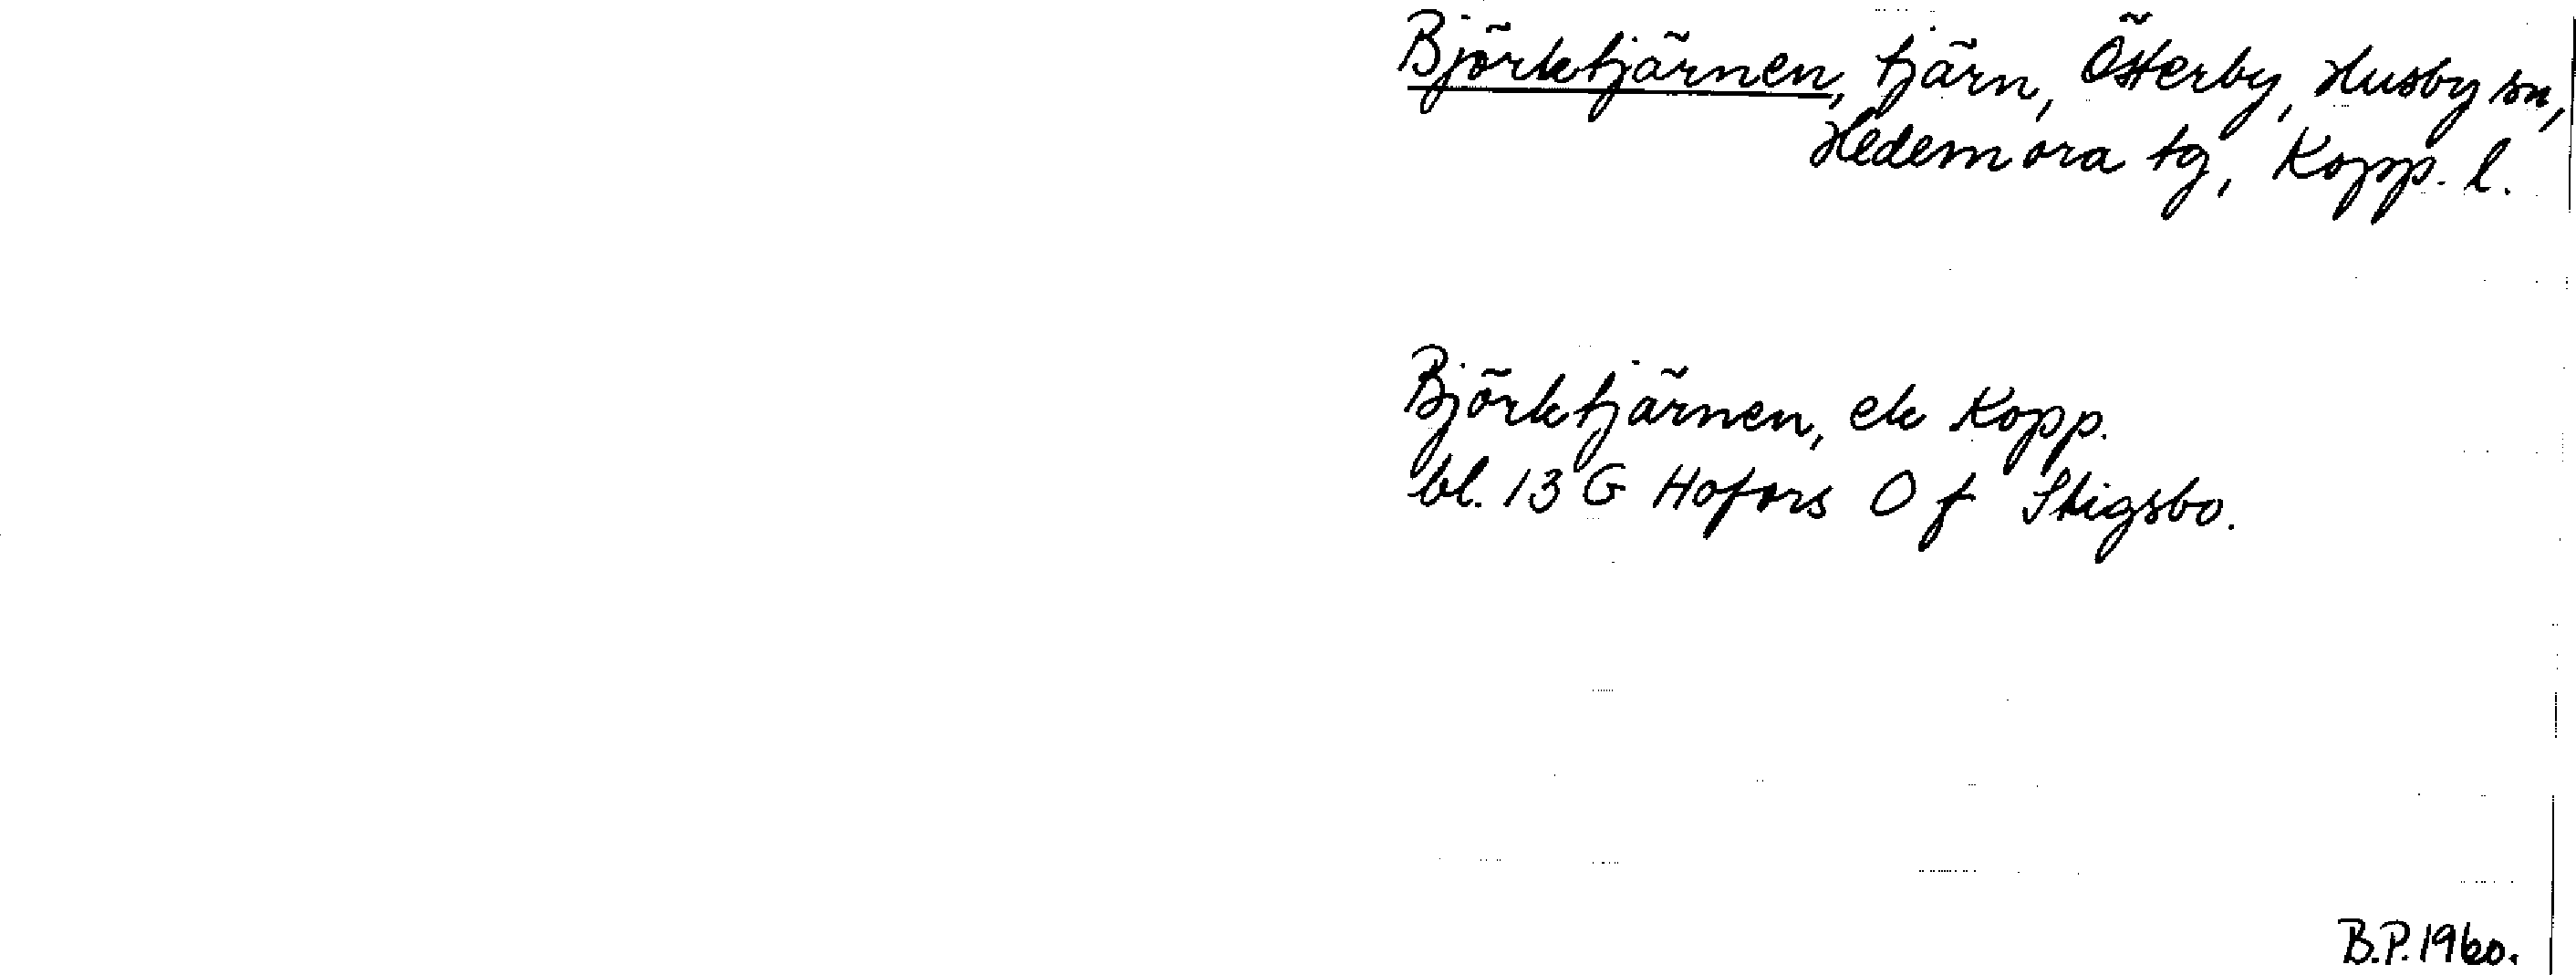 Björktjärnen, tjärn, Österby, Husby sn,
Hedemora tg, Kopp. l.
Björktjärnen, ek Kopp.
bl. 13 G Hofors O f Stigsbo.
B.P. 1960.